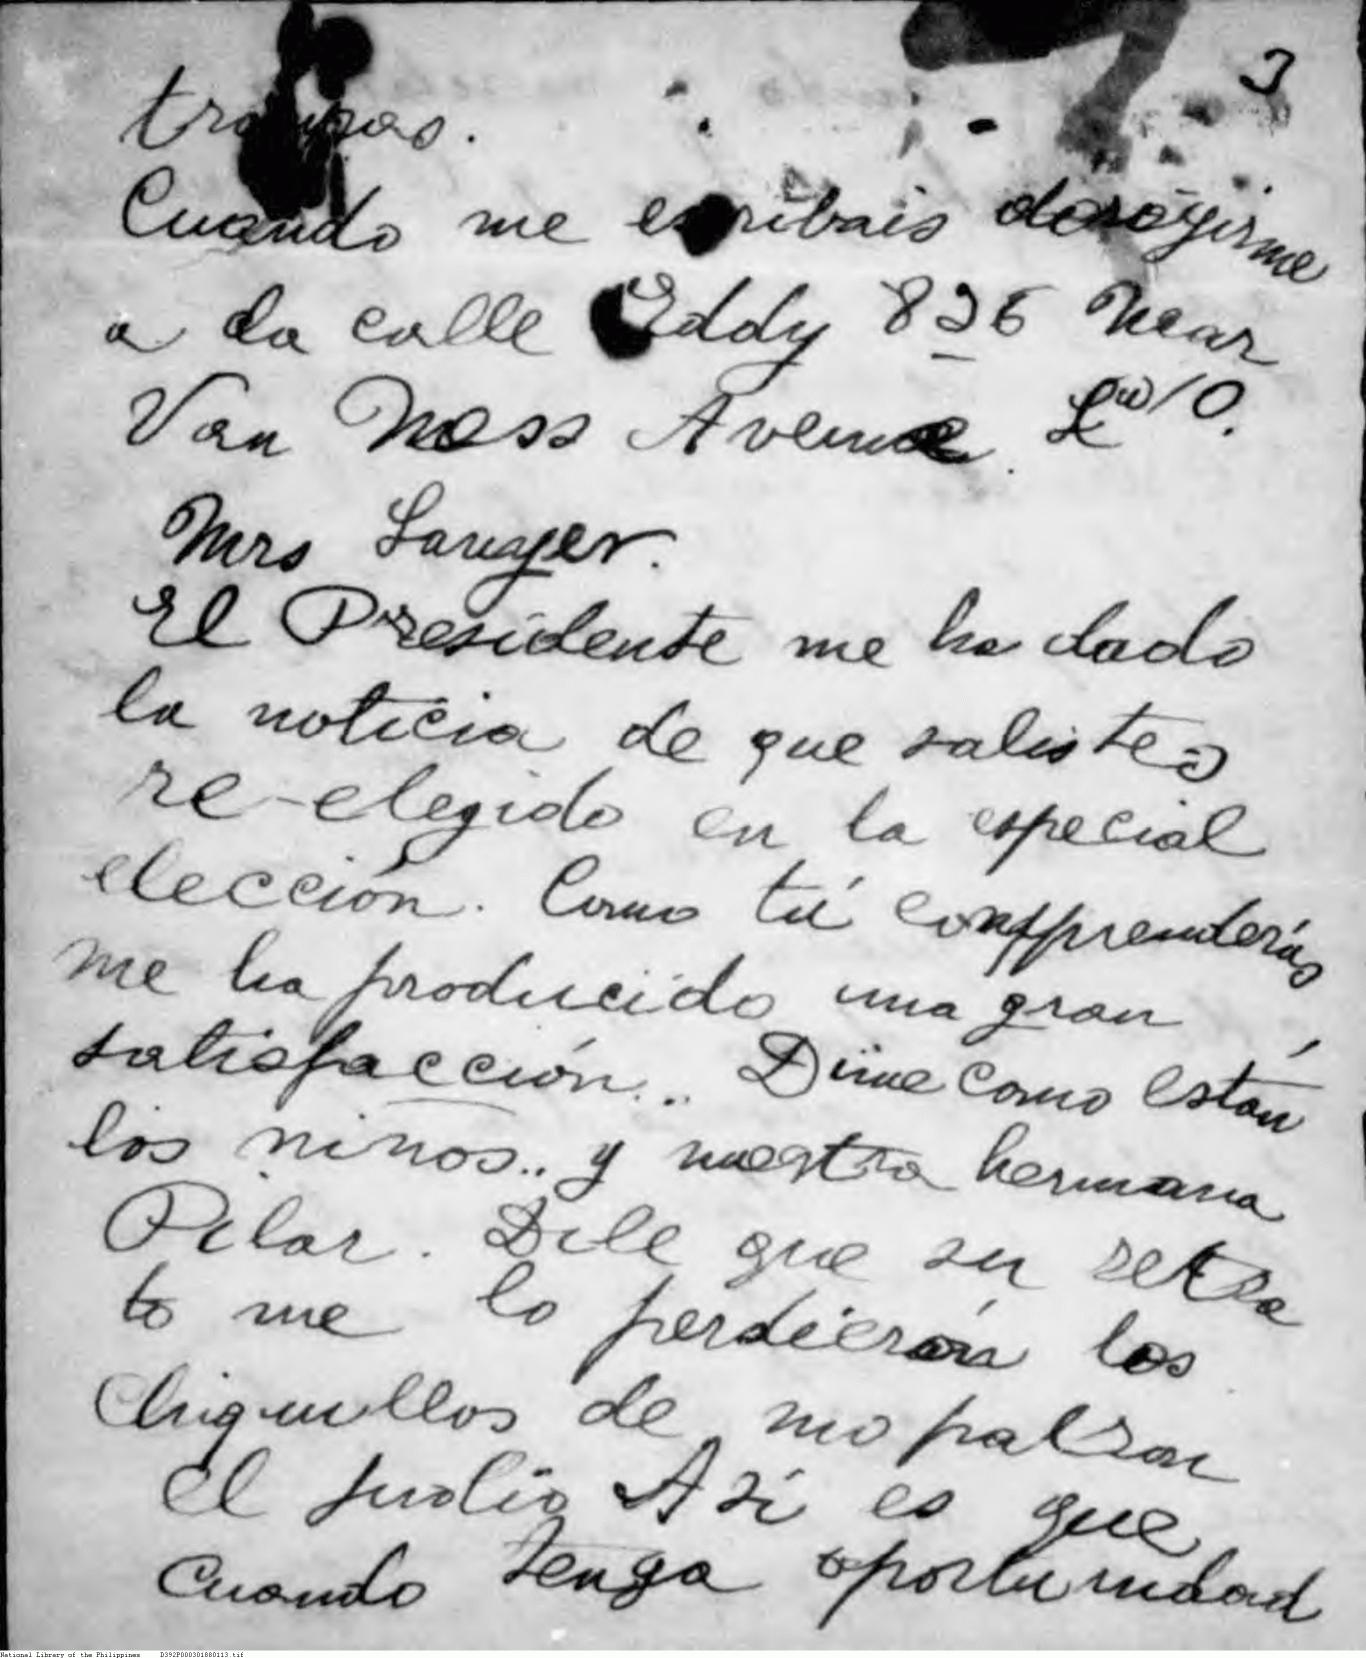 3
tropas.
Cuando me escribais dirigirme
a la calle Eddy 826 Near
Van Ness Avenue.
Mrs Sawyer.
El Presidente me ha dado
la noticia de que salistes
re-elegido en la especial
elección. Como tú compprenderás
me ha producido una gran
satisfacción... Dime como están
los niños.. y nuestra hermana
Pilar. Dile que su retra
to me lo perdierón los
chiquillos de mo patron
el judio Asi es que
cuando tenga oportunidad
National Library of the Philippines D392P000301880113.tif